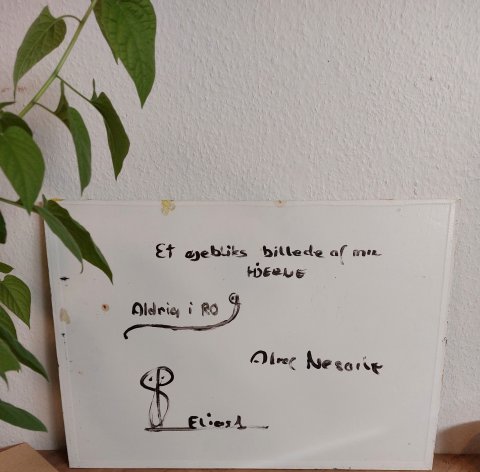 Et øjebliks billede af min
HJERNE
Aldrig i RO
Elias1